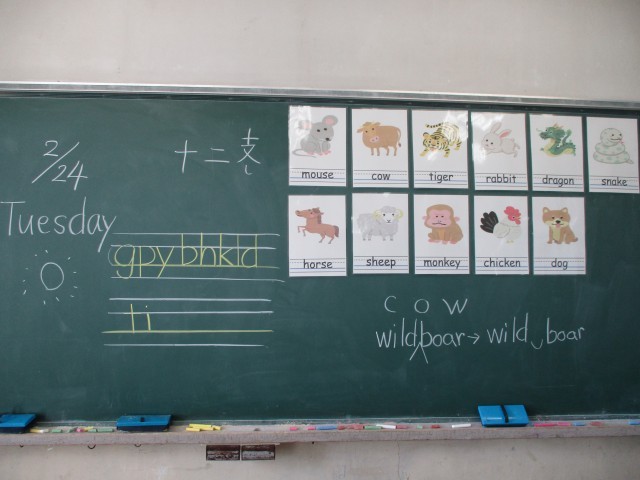 2/24
Tuesday
十二支
gpybhkld
ti
mouse
cow
tiger
rabbit
dragon
snake
horse
sheep
monkey
chicken
dog
cow
wildboar→wild boar